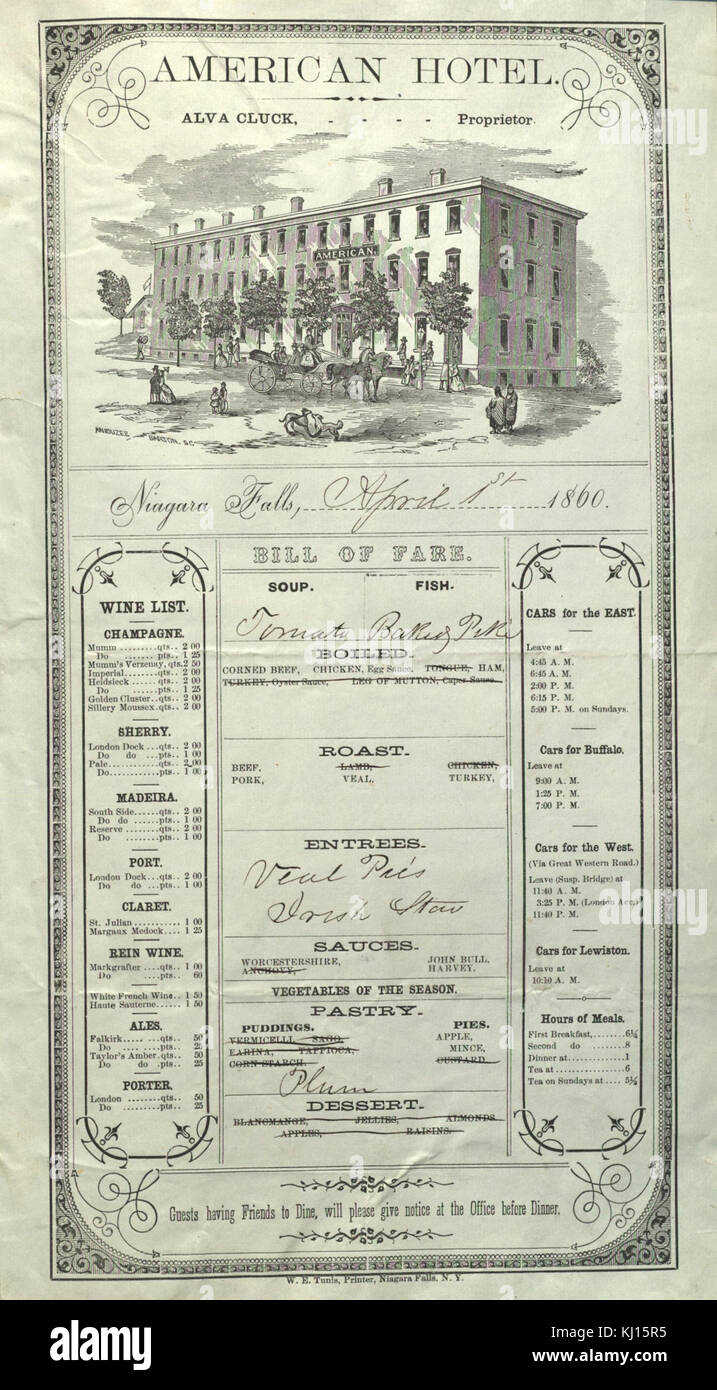 AMERICAN HOTEL.
ALVA CLUCK, - - - - Proprietor.
AMERICAN.
BARTON. S.C
Niagara Falls, April 1st 1860.
WINE LIST.
CHAMPAGNE.
Mumm ........qts.. 2 00
Do ......pts.. 1 25
Mumm's Verzenay, qts. 2 50
Imperial........qts.. 2 00
Heidsieck ......qts.. 2 00
Do ......pts.. 1 25
Golden Cluster..qts. 2 00
Sillery Moussex.qts. 2 00
SHERRY.
London Dock ...qts.. 2 00
Do do ...pts.. 1 00
Pale............qts.. 2 00
Do............pts.. 1 00
MADEIRA.
South Side.....qts. 2 00
Do do ......pts. 1 00
Reserve ........qts. 2 00
Do ......pts. 1 00
PORT.
London Dock..qts. 2 00
Do do ...pts. 1 00
CLARET.
St. Julian ........... 1 00
Margaux Medock.... 1 25
REIN WINE.
Markgrafter ....qts. 1 00
Do .....pts. 60
White French Wine.. 1 50
Haute Sauterne...... 1 50
ALES.
Falkirk ........qts. 50
Do ........pts. 25
Taylor's Amber.qts. 50
Do do .pts. 25
PORTER.
London ........qts. 50
Do .........pts. 25
BILL OF FARE.
SOUP. FISH.
Tomato Baked Pike
BOILED.
CORNED BEEF, CHICKEN, Egg Sauce, TONGUE, HAM,
TURKEY, Oyster Sauce, LEG OF MUTTON, Caper Sauce.
ROAST.
BEEF, LAMB, CHICKEN,
PORK, VEAL, TURKEY,
ENTREES.
Veal Pies
Irish Stew
SAUCES.
WORCESTERSHIRE, JOHN BULL,
ANCHOVY, HARVEY.
VEGETABLES OF THE SEASON.
PASTRY.
PUDDINGS. PIES.
VERMICELLI, SAGO, APPLE,
FARINA, TAPPIOCA, MINCE,
CORN STARCH. CUSTARD.
Plum
DESSERT.
BLANCMANGE, JELLIES, ALMONDS
APPLES, RAISINS.
CARS for the EAST.
Leave at
4:45 A. M.
6:45 A. M.
2:00 P. M.
6:15 P. M.
5:00 P. M. on Sundays.
Cars for Buffalo.
Leave at
9:00 A. M.
1:25 P. M.
7:00 P. M.
Cars for the West.
(Via Great Western Road.)
Leave (Susp. Bridge) at
11:40 A. M.
3:25 P. M. (London Acc.)
11:40 P. M.
Cars for Lewiston.
Leave at
10:10 A. M.
Hours of Meals.
First Breakfast,.......6½
Second do .......8
Dinner at............1
Tea at...............6
Tea on Sundays at .... 5½
Guests having Friends to Dine, will please give notice at the Office before Dinner.
W. E. Tunis, Printer, Niagara Falls, N. Y.
alamy stock photo
KJ15R5
www.alamy.com